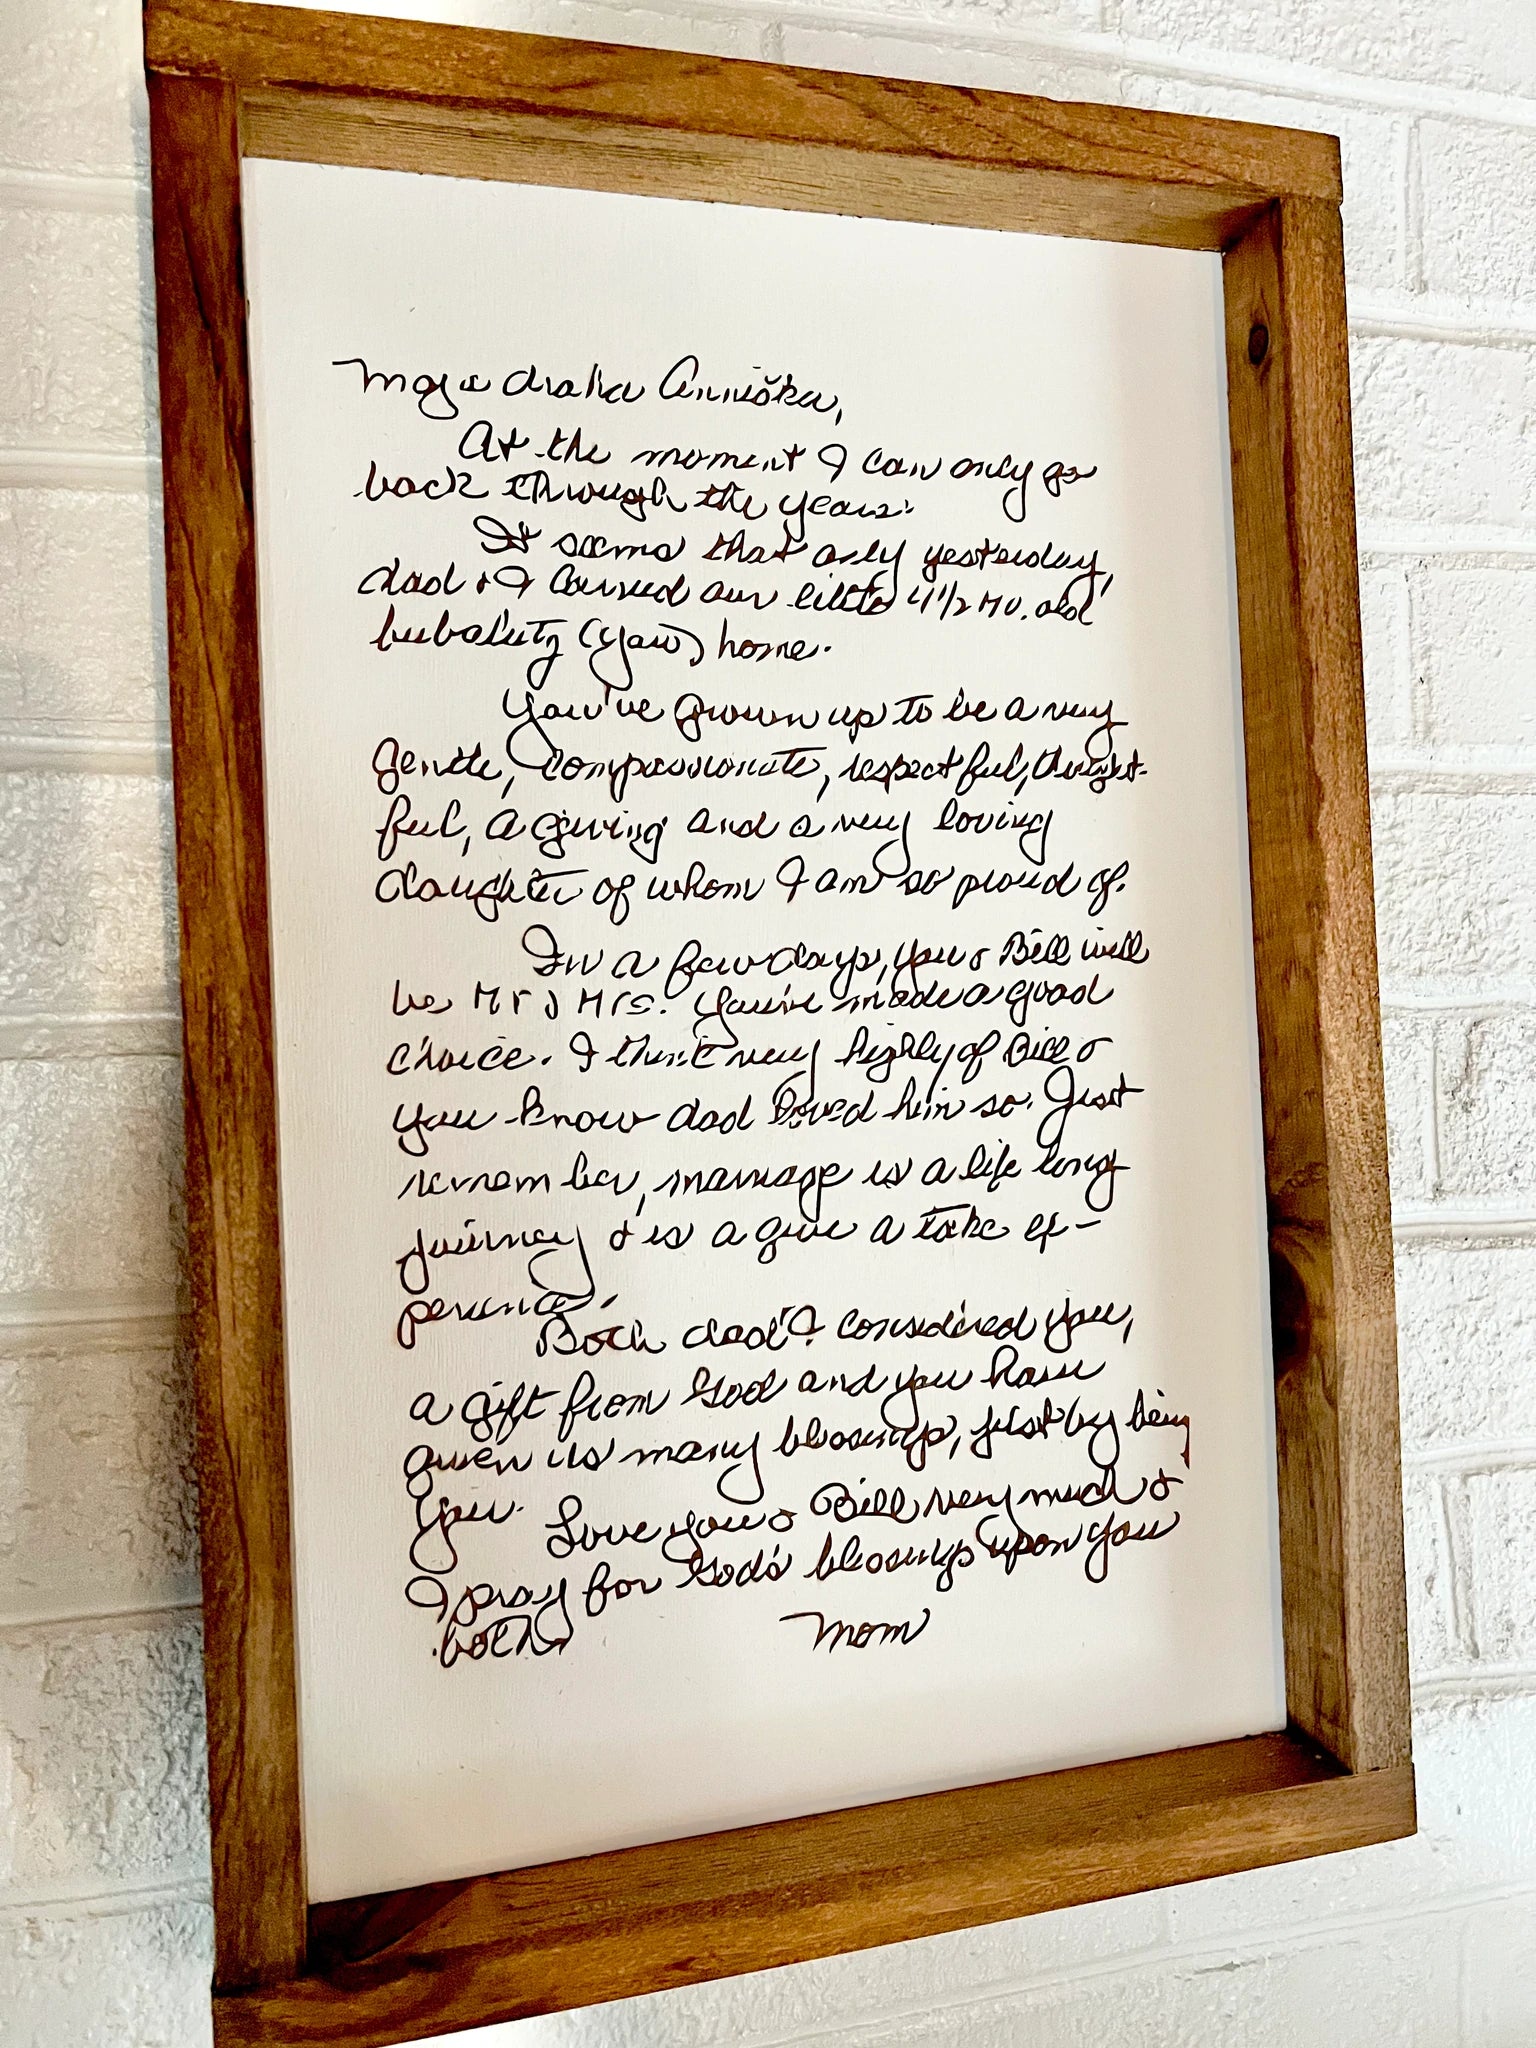 Moja draha Annička,
At the moment I can only go
back through the years.
It seems that only yesterday,
dad & I carried our little 4 1/2 mo. old
(you) home.
You've grown up to be a very
gentle, compassionate, respectful, thought-
ful, a giving and a very loving
daughter of whom I am so proud of.
In a few days, you & Bill will
be Mr & Mrs. You've made a good
choice. I think very highly of Bill &
you know dad loved him so. Just
remember, marriage is a life long
journey & is a give & take ex-
perience.
Both dad & I considered you,
a gift from God and you have
given us many blessings, just by being
you.
Love you & Bill very much &
I pray for God's blessings upon you
both.
Mom